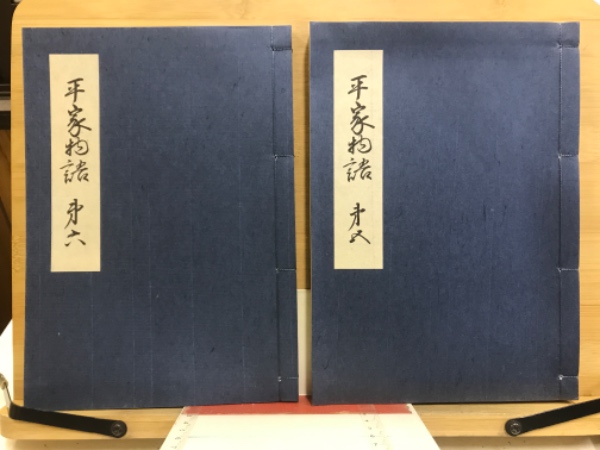 平家物語 第六
平家物語 第五